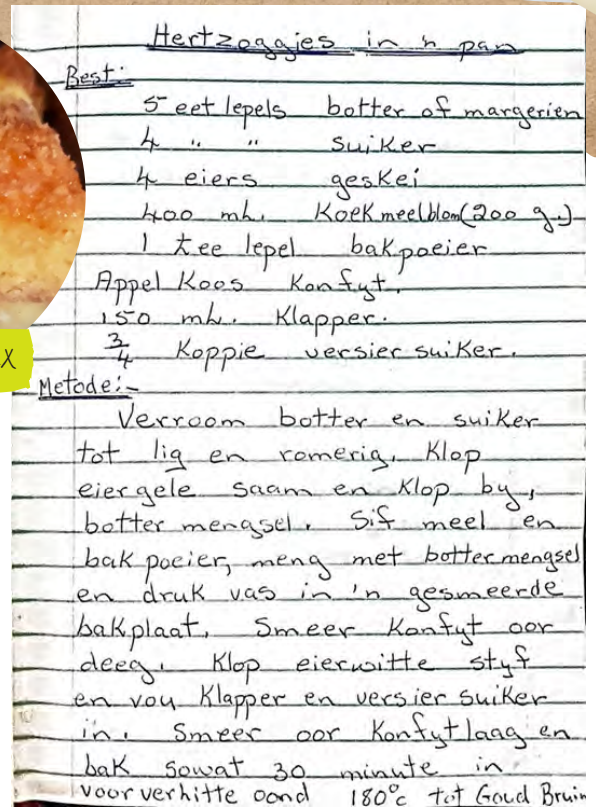 Hertzoggjes in 'n pan
Best:
5 eet lepels botter of margerien
4 " " suiker
4 eiers geskei
400 ml. Koek meelblom (200 g.)
1 tee lepel bakpoeier
Appel Koos Konfyt.
150 ml. Klapper.
3/4 Koppie versier suiker.
X
Metode:-
Verroom botter en suiker
tot lig en romerig. Klop
eiergele saam en Klop by,
botter mengsel. Sif meel en
bak poeier, meng met bottermengsel
en druk vas in 'n gesmeerde
bakplaat. Smeer Konfyt oor
deeg. Klop eierwitte styf
en vou Klapper en versier suiker
in. Smeer oor Konfytlaag en
bak sowat 30 minute in
voorverhitte oond 180°c tot Goud Bruin